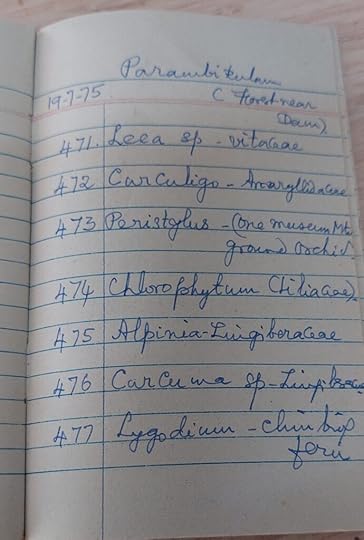 Parambikulam
19-7-75 (Forest near
Dam)
471. Leea sp - vitaceae
472 Curculigo - Amaryllidaceae
473 Peristylus - (One museum Mt
ground Orchid
474 Chlorophytum (Liliaceae)
475 Alpinia - Zingiberaceae
476 Curcuma sp - Zingiberaceae
477 Lygodium - Climbing
fern